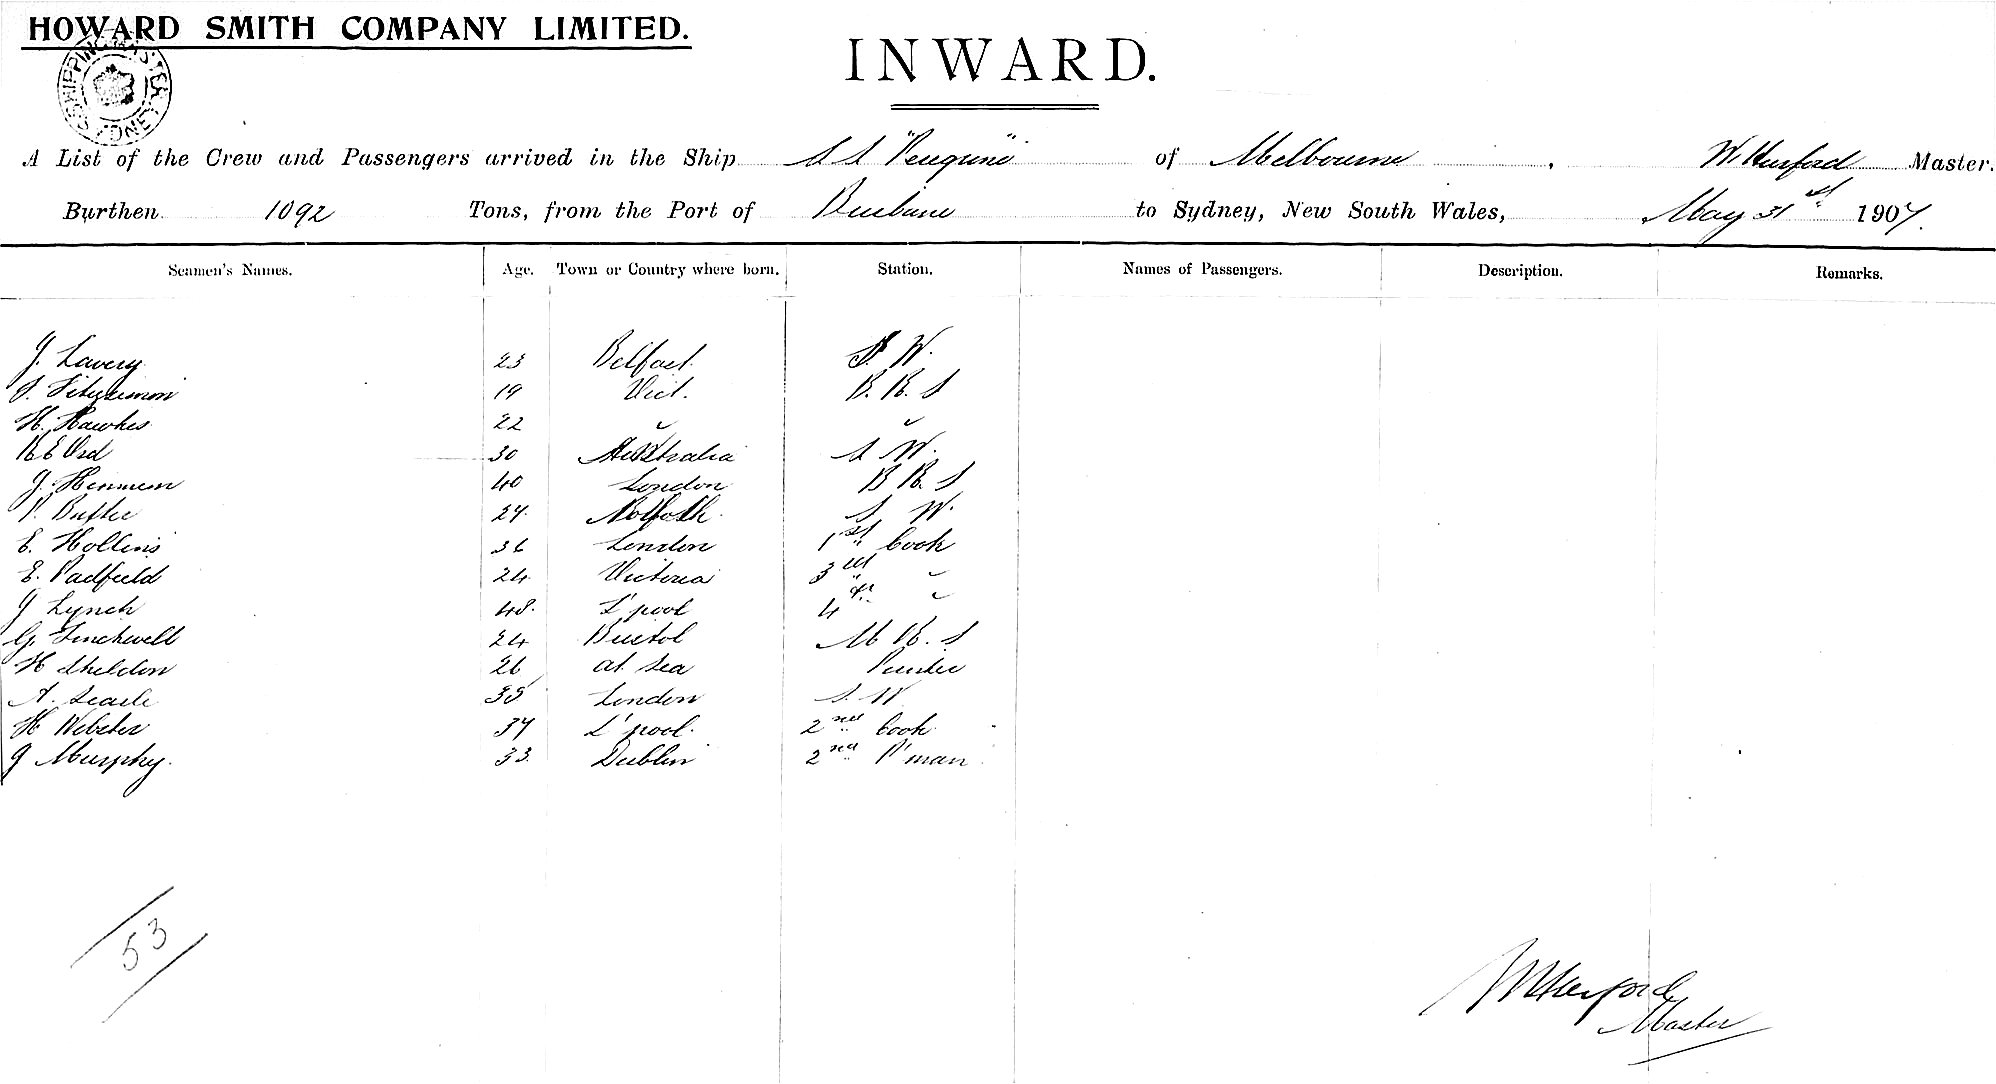 HOWARD SMITH COMPANY LIMITED.
SHIPPING MASTER SYDNEY
INWARD.
A List of the Crew and Passengers arrived in the Ship S S "Peregrine" of Melbourne, W. Hurford Master.
Burthen 1092 Tons, from the Port of Brisbane to Sydney, New South Wales, May 31st 1907.
Seamen's Names. Age. Town or Country where born. Station. Names of Passengers. Description. Remarks.
J. Lavery 23 Belfast. S. W.
Fitzsimon 19 Vict. B. R. S
H. Hawkes 22 " "
R E Ord 30 Australia S W.
J. 40 London B R. S
P. Butler 27. Norfolk. S W.
E. Hollins 36 London 1st Cook
E. Padfield 24 Victoria 3rd "
J Lynch 48. L'pool 4th "
G. 24 Bristol M R. S
H Sheldon 26 at Sea
A. Searle 35 London S. W
H Webster 37 L'pool. 2nd Cook
J Murphy. 33. Dublin 2nd P'man
53
W Hurford
Master